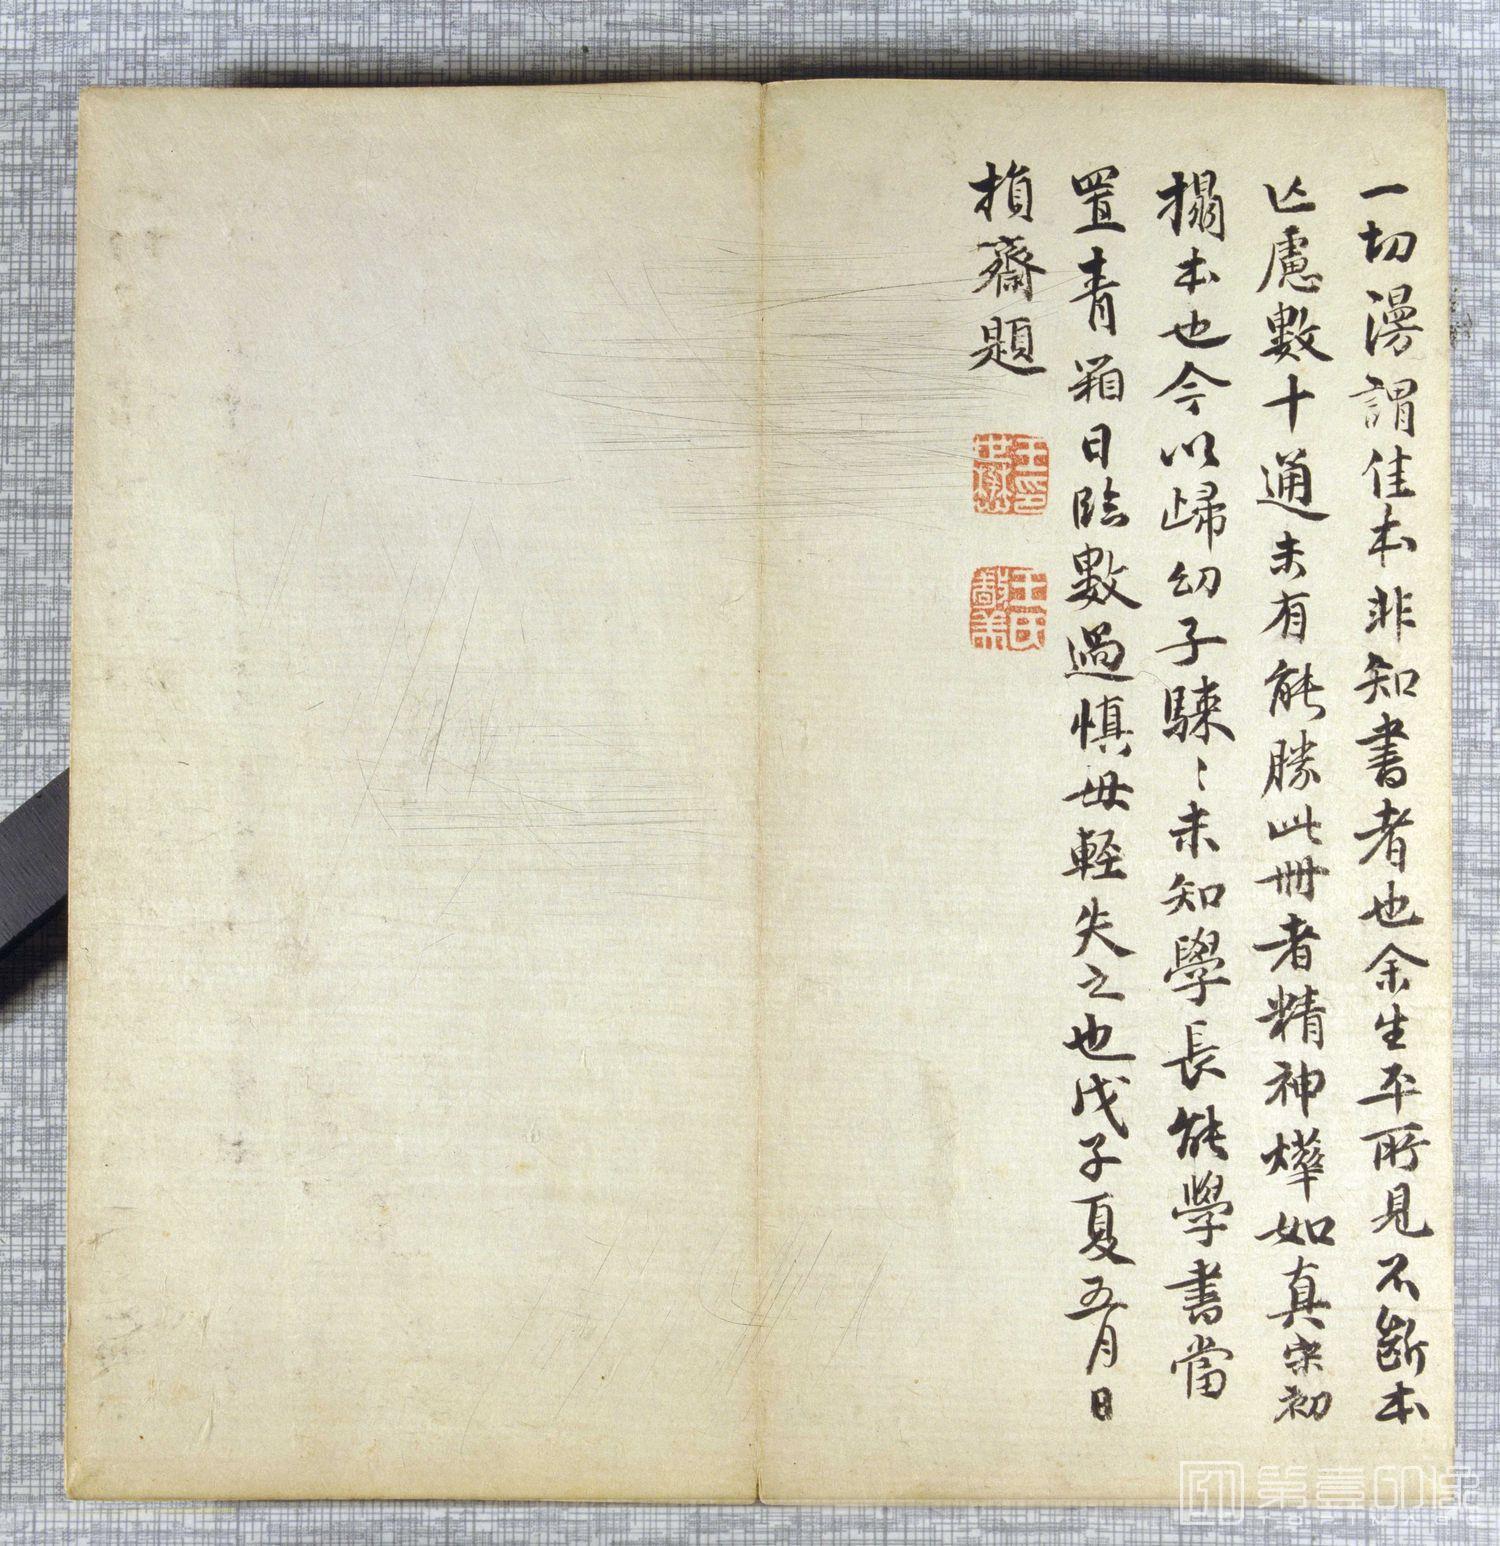 一切漫謂佳本非知書者也余生平所見不斷本
亾慮數十通未有能勝此冊者精神燁如真宋初
搨本也今以歸幼子騋〻未知學長能學書當
置青箱日臨數過慎毋輕失之也戊子夏五月日
損齋題
王氏敬美
第壹印象
TOPIMAGE